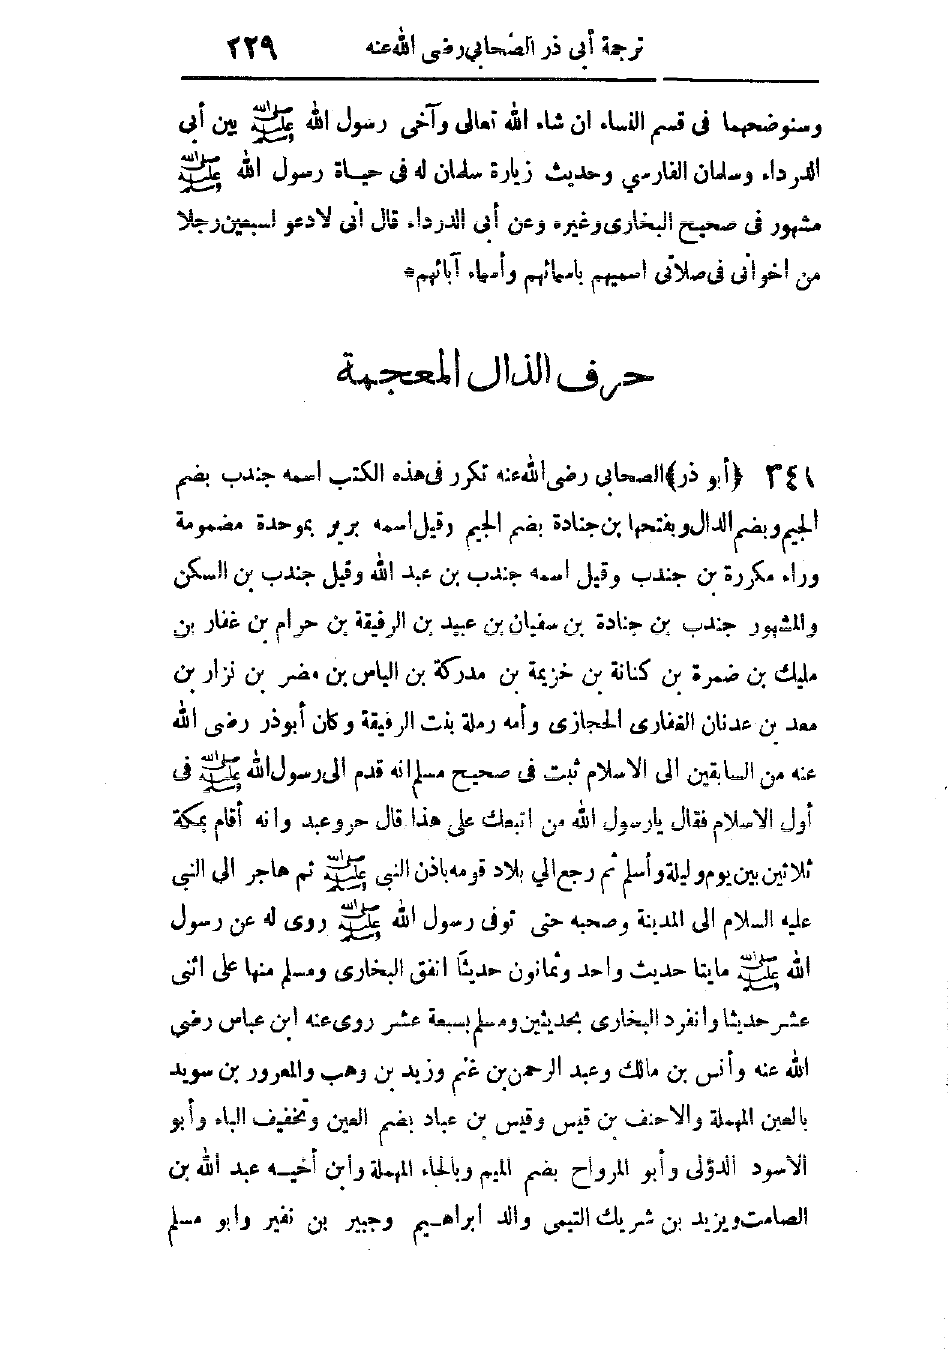 ترجمة أبى ذر الصحابي رضى الله عنه ٢٢٩
وسنوضحهما فى قسم النساء ان شاء الله تعالى وآخى رسول الله ﷺ بين أبى
الدرداء وسلمان الفارسي وحديث زيارة سلمان له فى حياة رسول الله ﷺ
مشهور فى صحيح البخارى وغيره وعن أبى الدرداء قال انى لادعو لسبعين رجلا
من اخوانى فى صلاتى اسميهم باسمائهم وأسماء آبائهم*
حرف الذال المعجمة
٣٤١ ﴿أبو ذر﴾ الصحابي رضى الله عنه تكرر فى هذه الكتب اسمه جندب بضم
الجيم وبضم الدال وبفتحها بن جنادة بضم الجيم وقيل اسمه برير بموحدة مضمومة
وراء مكررة بن جندب وقيل اسمه جندب بن عبد الله وقيل جندب بن السكن
والمشهور جندب بن جنادة بن سفيان بن عبيد بن الرفيقة بن حرام بن غفار بن
مليك بن ضمرة بن كنانة بن خزيمة بن مدركة بن الياس بن مضر بن نزار بن
معد بن عدنان الغفارى الحجازى وأمه رملة بنت الرفيقة وكان أبو ذر رضى الله
عنه من السابقين الى الاسلام ثبت فى صحيح مسلم انه قدم الى رسول الله ﷺ فى
أول الاسلام فقال يارسول الله من اتبعك على هذا قال حر وعبد وانه أقام بمكة
ثلاثين بين يوم وليلة وأسلم ثم رجع الي بلاد قومه باذن النبى ﷺ ثم هاجر الى النبى
عليه السلام الى المدينة وصحبه حتى توفى رسول الله ﷺ روى له عن رسول
الله ﷺ مايتا حديث واحد وثمانون حديثا اتفق البخارى ومسلم منها على اثنى
عشر حديثا وانفرد البخارى بحديثين ومسلم بسبعة عشر روى عنه ابن عباس رضي
الله عنه وأنس بن مالك وعبد الرحمن بن غنم وزيد بن وهب والمعرور بن سويد
بالعين المهملة والاحنف بن قيس وقيس بن عباد بضم العين وتخفيف الباء وأبو
الاسود الدؤلى وأبو المرواح بضم الميم وبالحاء المهملة وابن أخيه عبد الله بن
الصامت ويزيد بن شريك التيمى والد ابراهيم وجبير بن نفير وابو مسلم